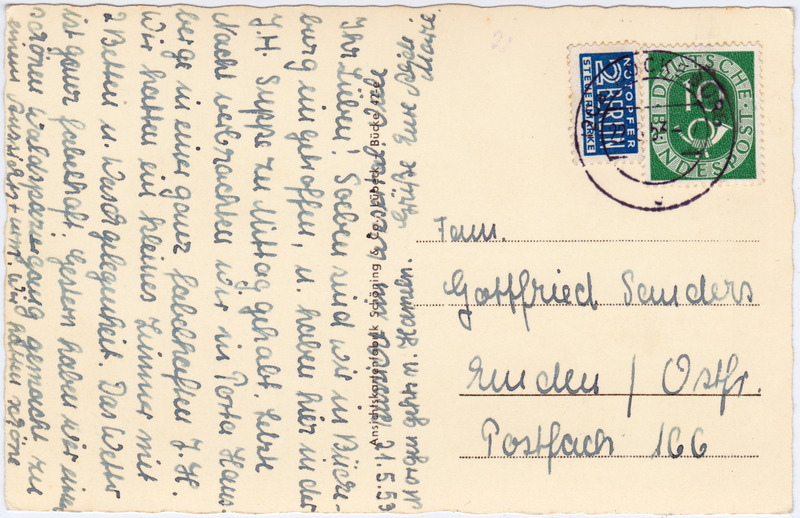 21.5.53
Ihr Lieben, Soeben sind wir in Bücke-
burg eingetroffen, u. haben hier in der
J.H. Suppe zu Mittag gehabt. Letzte
Nacht verbrachten wir in Porta Haus-
berge in einer ganz fabelhaften J.H.
Wir hatten ein kleines Zimmer mit
2 Betten u. Waschgelegenheit. Das Wetter
ist ganz fabelhaft. Gestern haben wir einen
schönen Waldspaziergang gemacht zu
einem Aussichtsturm. Wir haben schöne
Morgen gehts n. Hameln. Grüße Eure
Marie.
Ansichtskartenfabrik Schöning & Co., Lübeck
Bücke 424e
NOTOPFER
2 BERLIN
STEUERMARKE
DEUTSCHE
BUNDESPOST
10
Fam.
Gottfried Sanders
Emden / Ostfr.
Postfach 166